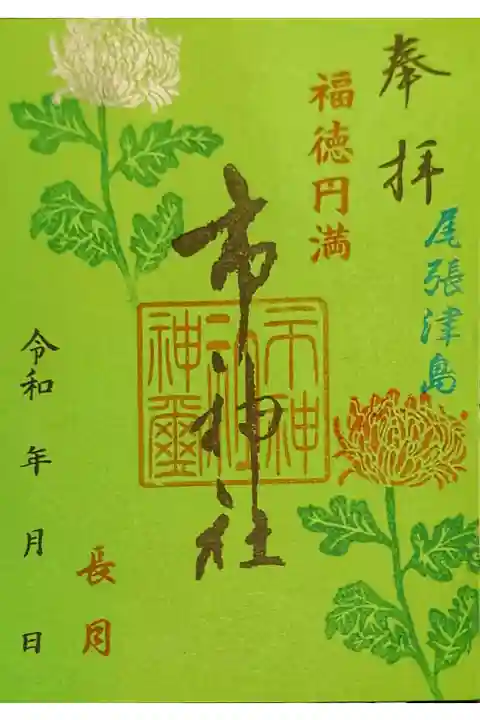 奉拝
尾張津島
福徳円満
市神社
市神
社
神璽
長月
令和 年 月 日